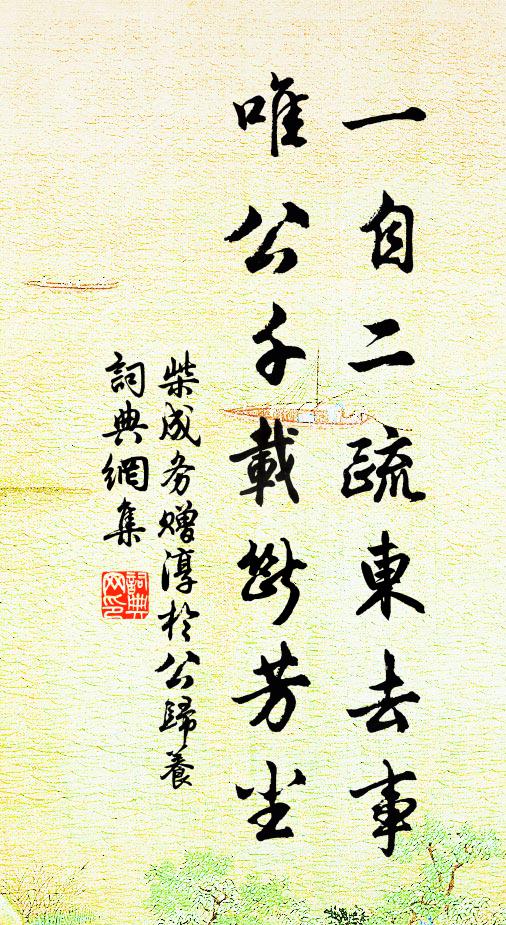 一自二疏東去事
唯公千載芳尘
柴成务贈淳於公歸養
詞典網集
詞典
网印